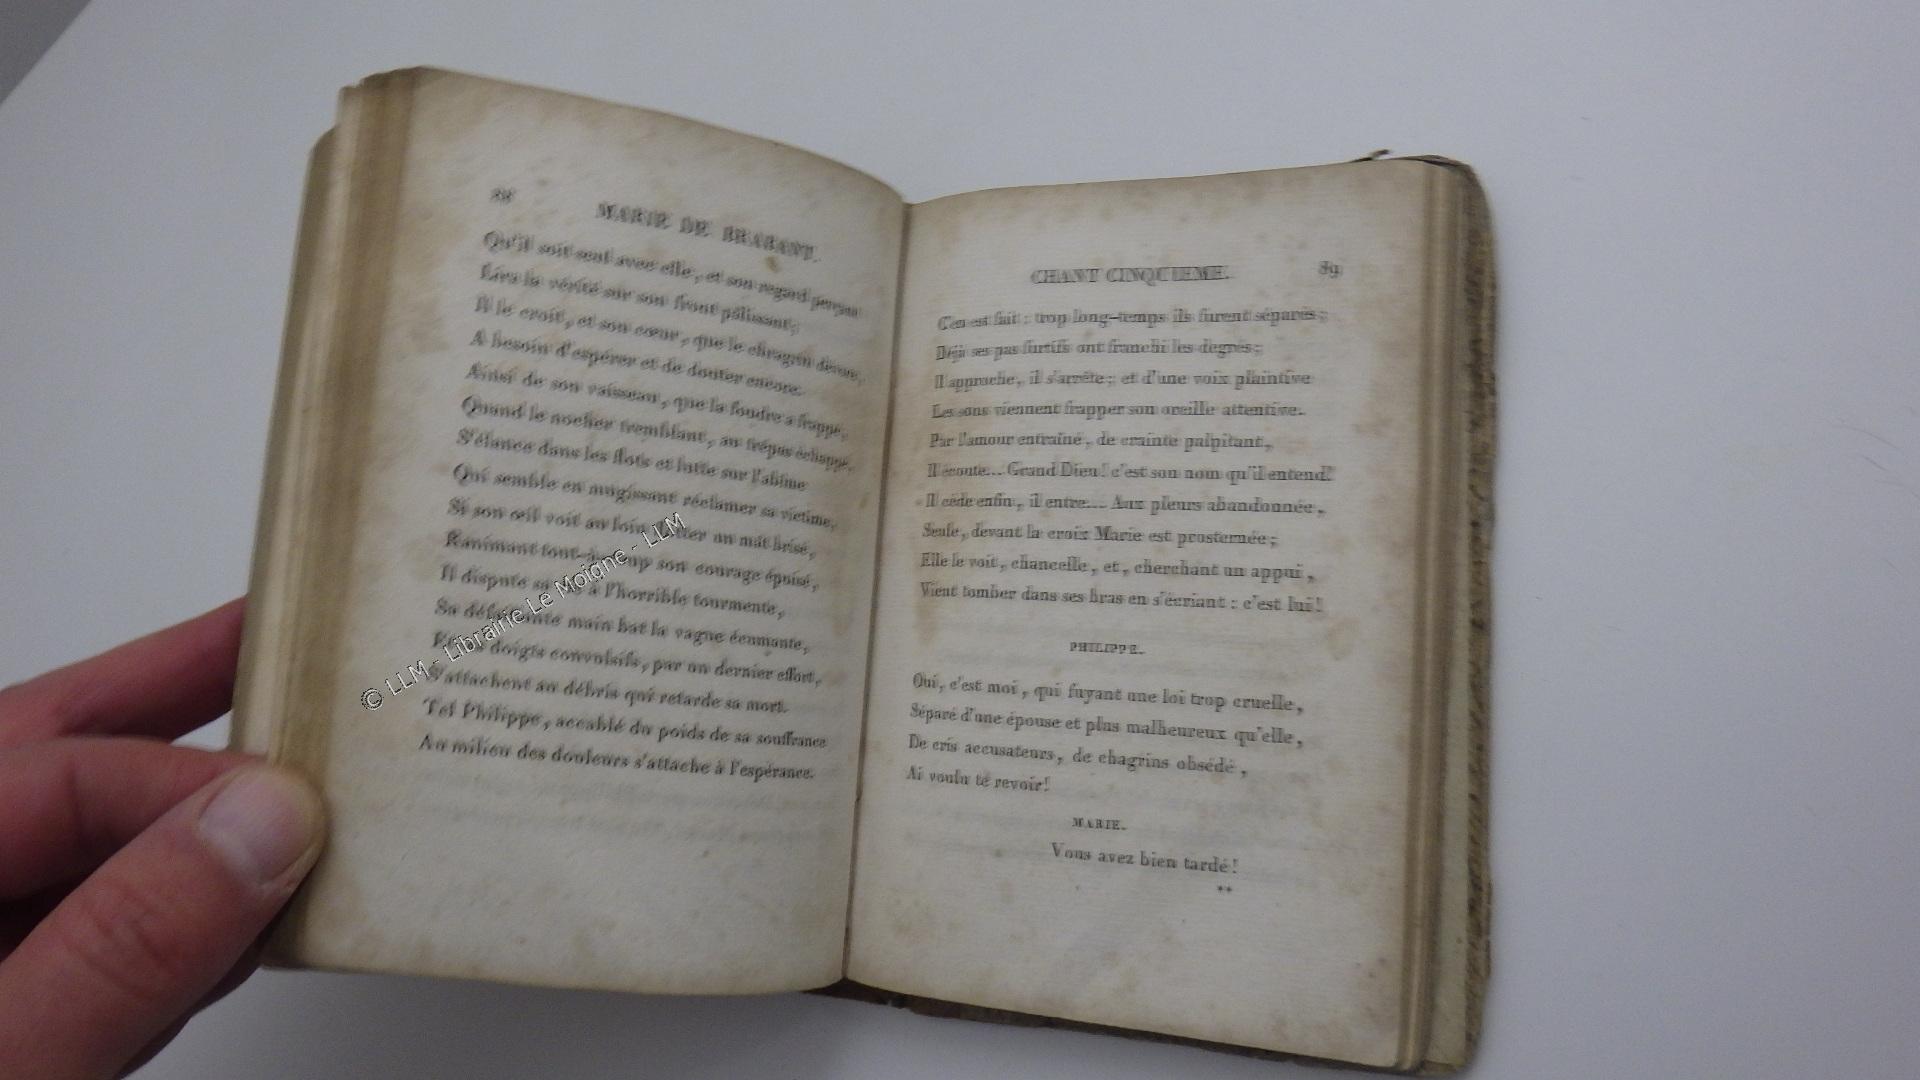 88
MARIE DE BRABANT.
Qu'il soit seul avec elle, et son regard perçant
Lira la vérité sur son front pâlissant;
Il le croit, et son cœur, que le chagrin dévore,
A besoin d'espérer et de douter encore.
Ainsi de son vaisseau, que la foudre a frappé,
Quand le nocher tremblant, au trépas échappé,
S'élance dans les flots et lutte sur l'abîme
Qui semble en mugissant réclamer sa victime,
Si son œil voit au loin flotter un mât brisé,
Ranimant tout-à-coup son courage épuisé,
Il dispute sa à l'horrible tourmente,
Sa défaillante main bat la vague écumante,
Et doigts convulsifs, par un dernier effort,
S'attachent au débris qui retarde sa mort.
Tel Philippe, accablé du poids de sa souffrance
Au milieu des douleurs s'attache à l'espérance.
© LLM - Librairie Le Moigne - LLM
CHANT CINQUIEME.
89
C'en est fait : trop long-temps ils furent séparés;
Déjà ses pas furtifs ont franchi les degrés;
Il approche, il s'arrête; et d'une voix plaintive
Les sons viennent frapper son oreille attentive.
Par l'amour entraîné, de crainte palpitant,
Il écoute... Grand Dieu! c'est son nom qu'il entend!
Il cède enfin, il entre.... Aux pleurs abandonnée,
Seule, devant la croix Marie est prosternée;
Elle le voit, chancelle, et, cherchant un appui,
Vient tomber dans ses bras en s'écriant : c'est lui!
PHILIPPE.
Oui, c'est moi, qui fuyant une loi trop cruelle,
Séparé d'une épouse et plus malheureux qu'elle,
De cris accusateurs, de chagrins obsédé,
Ai voulu te revoir!
MARIE.
Vous avez bien tardé!
**